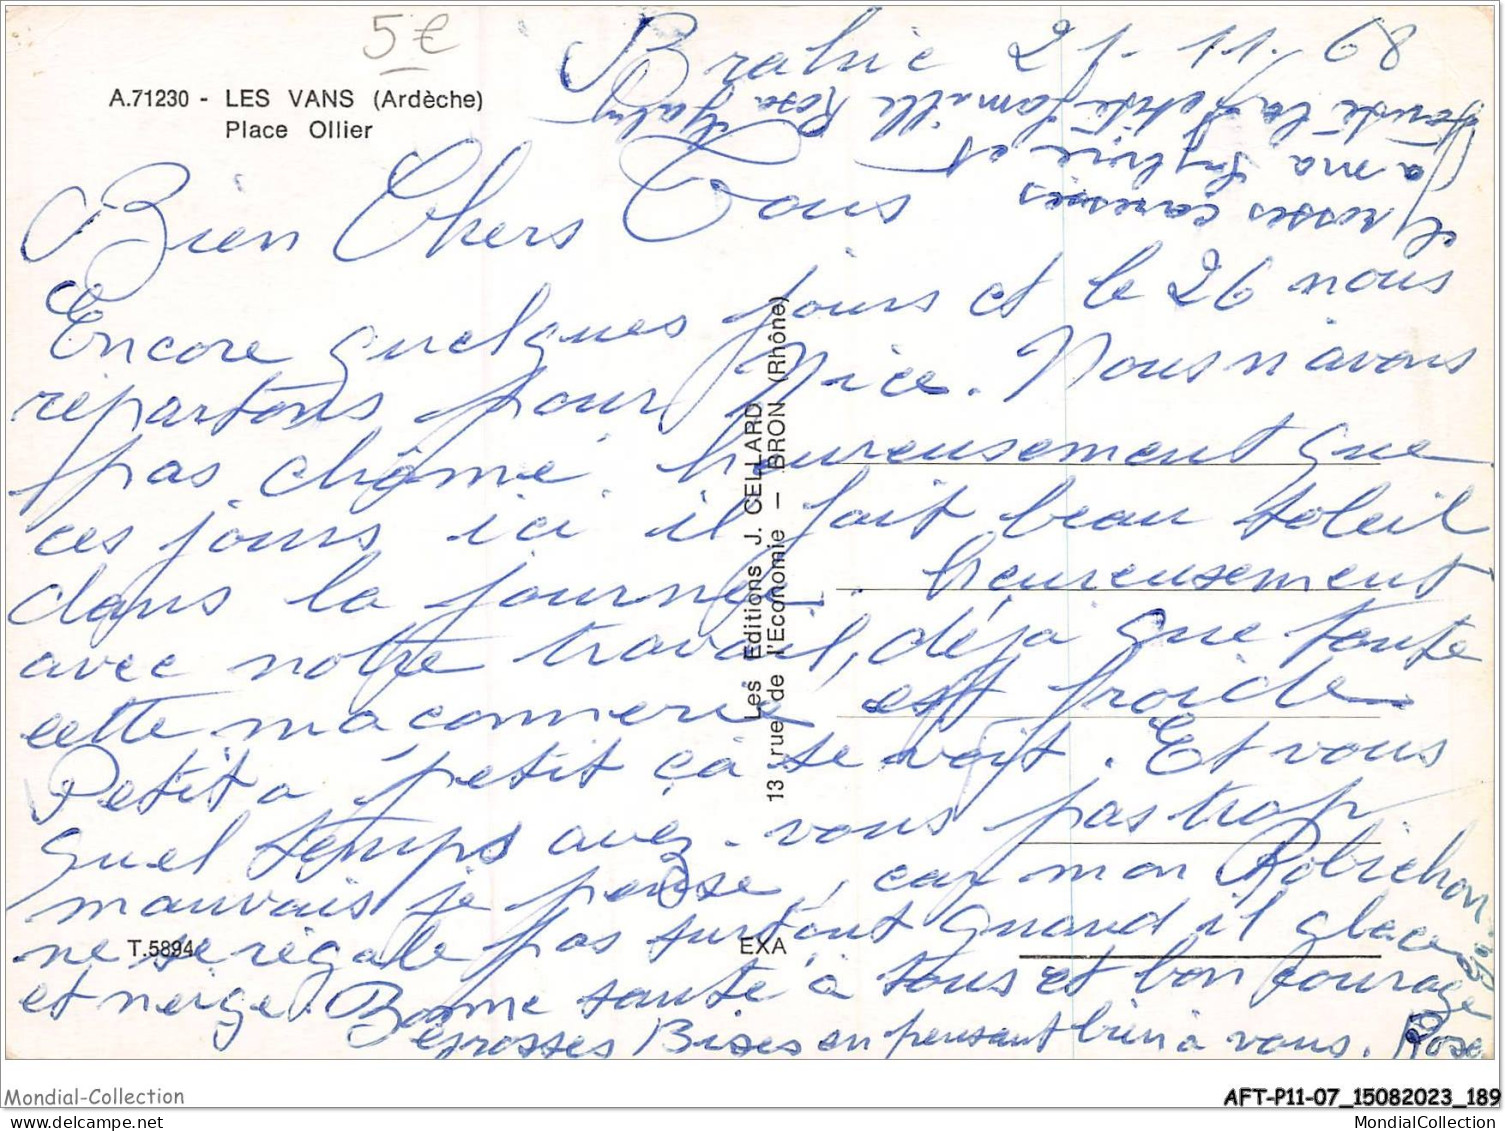 5€
A.71230 - LES VANS (Ardèche)
Place Ollier
Brahic 21-11-68
Bien Chers Tous
Encore quelques jours et le 26 nous
repartons pour Nice. Nous n'avons
pas chômé, heureusement que
ces jours ici il fait beau soleil
dans la journée, heureusement
avec notre travail, déjà que toute
cette maconnerie est froide
Petit a petit ça se voit. Et vous
quel temps avez-vous pas trop
mauvais je pense, car mon Robichon
ne se régale pas surtout quand il glace
et neige. Bonne santé à tous et bon courage
Grosses Bises en pensant bien à vous. Rose
Grosses caresses
a ma et
toute la petite famille Rosa Gaby
Les Editions J. CELLARD
13 rue de l'Economie - BRON (Rhône)
T.5894
EXA
Mondial-Collection
akpool.de
AFT-P11-07_15082023_189
MondialCollection